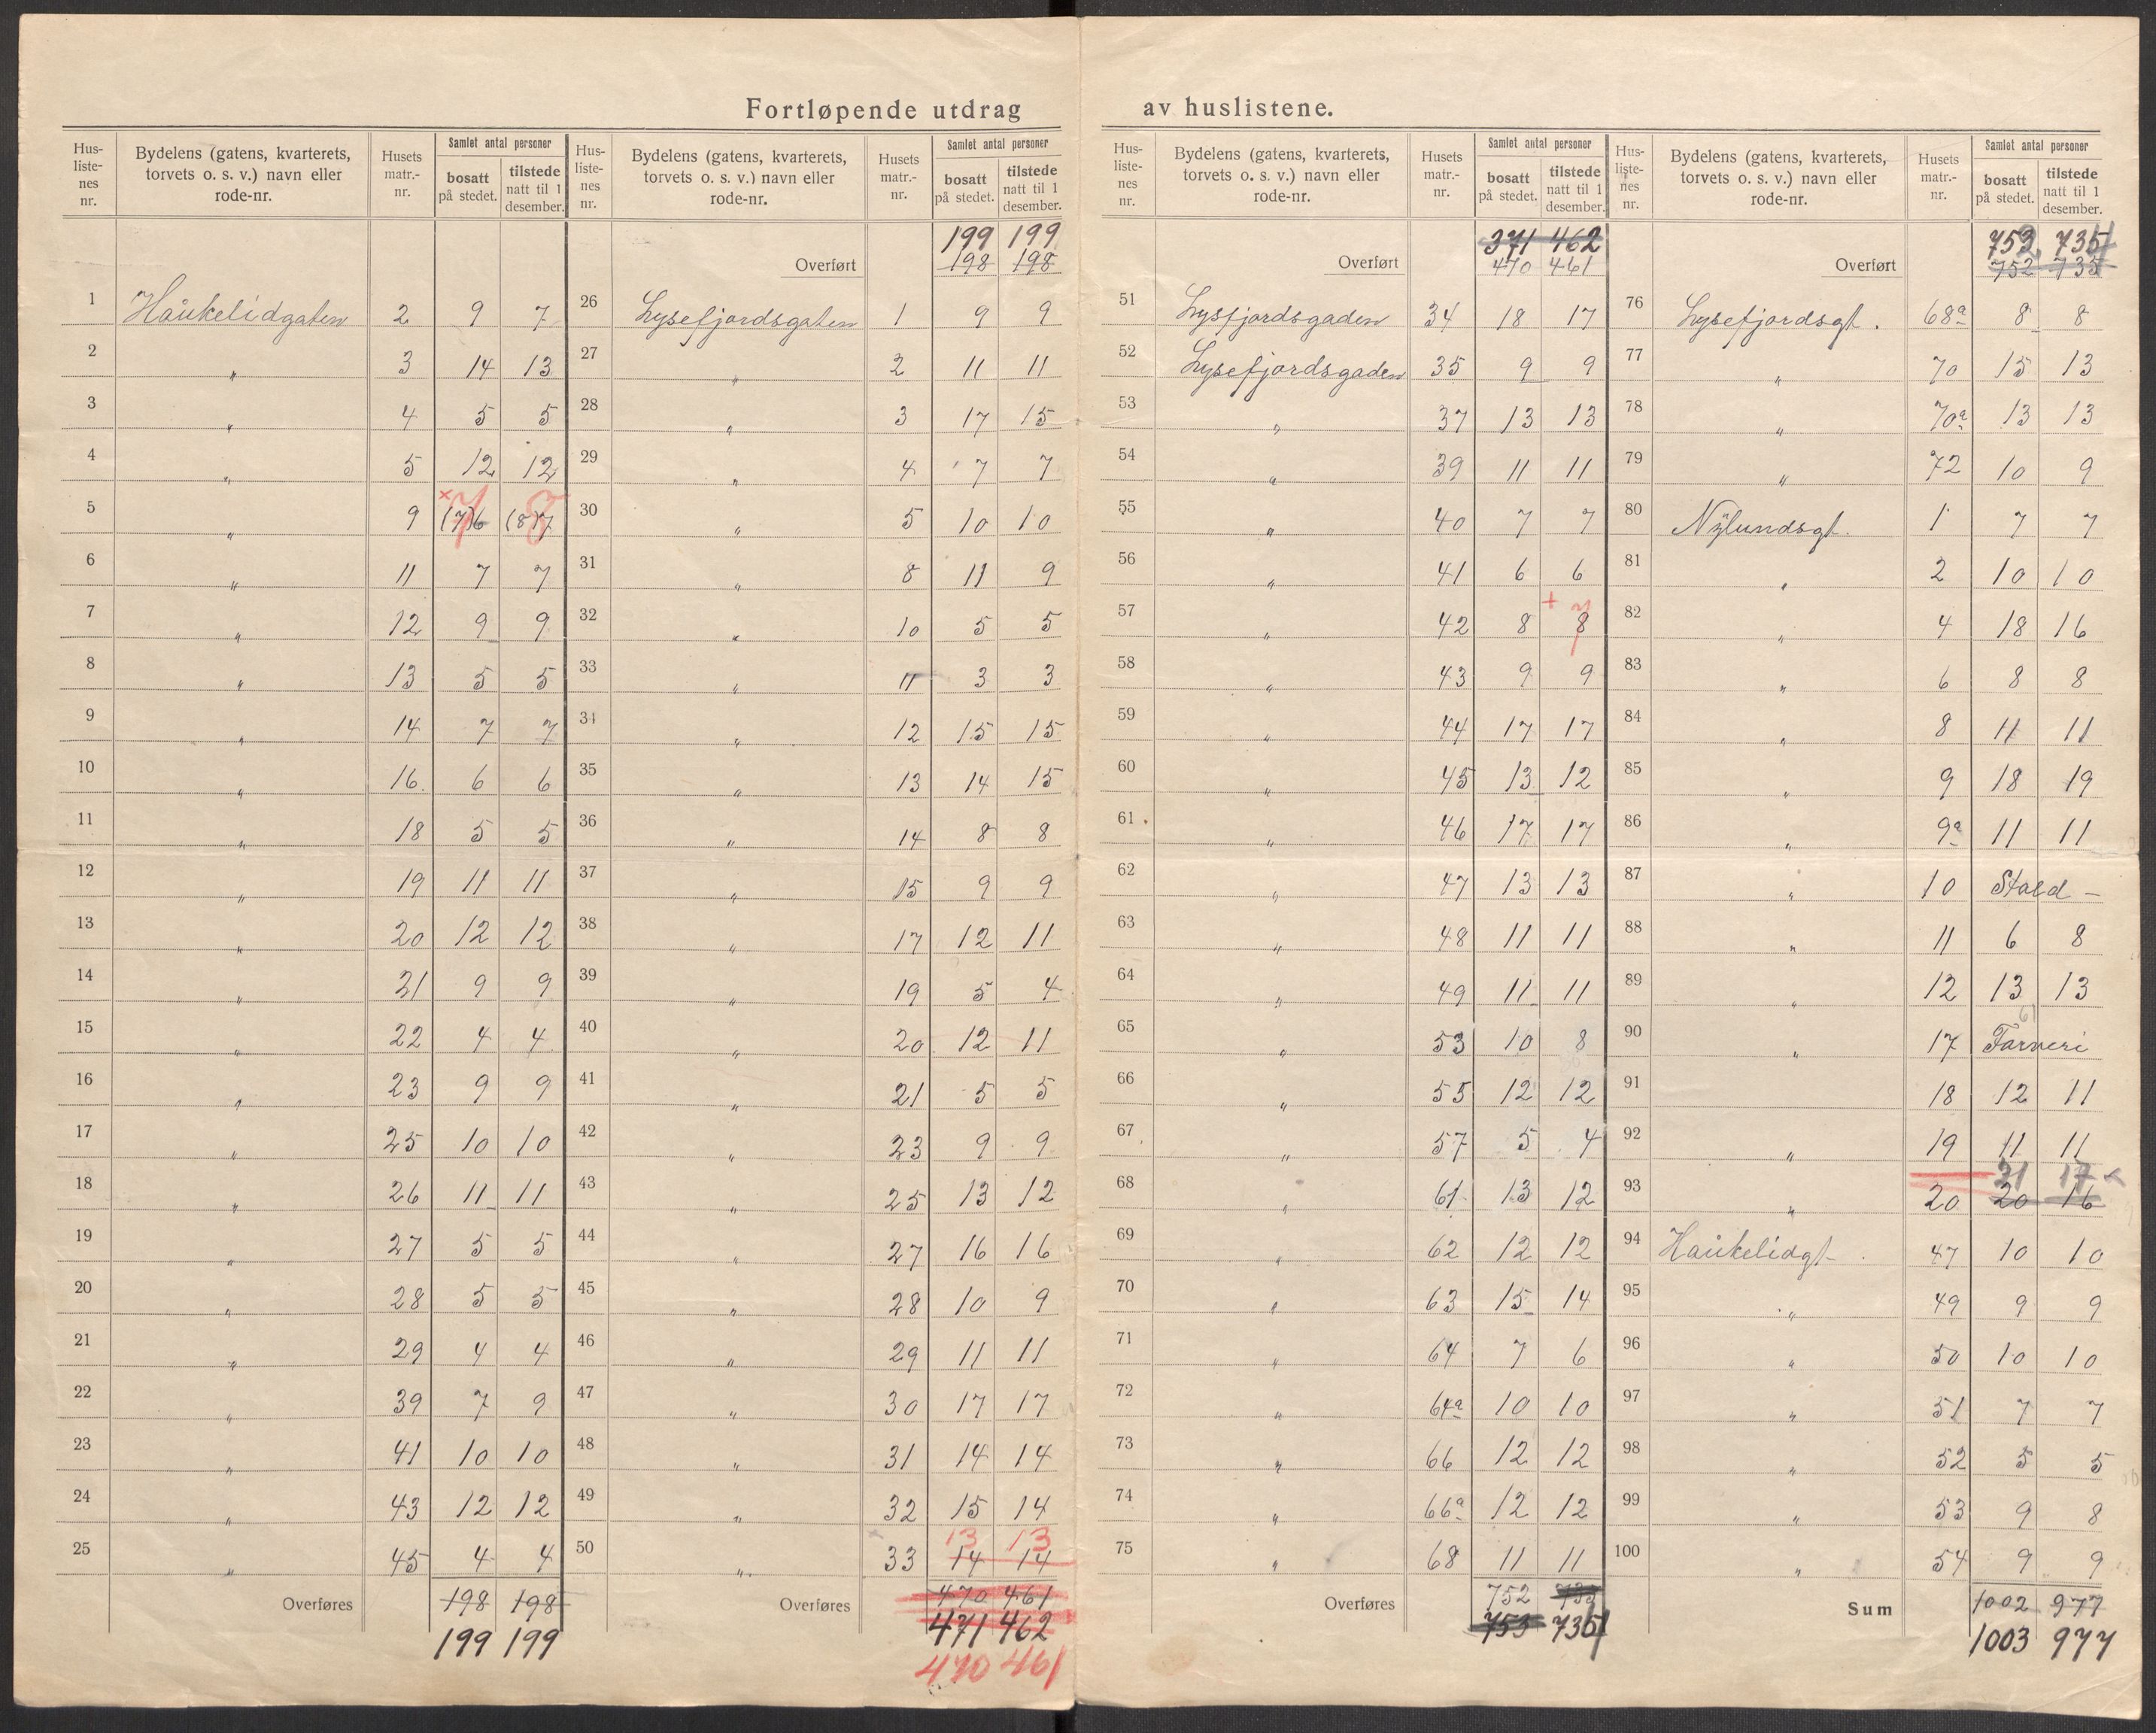 Fortløpende utdrag av huslistene.
Hus-liste-nes nr. | Bydelens (gatens, kvarterets, torvets o. s. v.) navn eller rode-nr. | Husets matr.-nr. | Samlet antal personer | bosatt på stedet. | tilstede natt til 1 desember.
1 Haükelidgaten 2 9 7
2 " 3 14 13
3 " 4 5 5
4 " 5 12 12
5 " 9 (7)6 7 (8)7 8
6 " 11 7 7
7 " 12 9 9
8 " 13 5 5
9 " 14 7 7
10 " 16. 6 6
11 " 18 5 5
12 " 19 11 11
13 " 20 12 12
14 " 21 9 9
15 " 22 4 4
16 " 23 9 9
17 " 25 10 10
18 " 26 11 11
19 " 27 5 5
20 " 28 5 5
21 " 29 4 4
22 " 39 7 9
23 " 41 10 10
24 " 43 12 12
25 " 45 4 4
Overføres 198 198
199 199
Hus-liste-nes nr. | Bydelens (gatens, kvarterets, torvets o. s. v.) navn eller rode-nr. | Husets matr.-nr. | Samlet antal personer | bosatt på stedet. | tilstede natt til 1 desember.
199 199
Overført 198 198
26 Lysefjordsgaten 1 9 9
27 " 2 11 11
28 " 3 17 15
29 " 4 7 7
30 " 5 10 10
31 " 8 11 9
32 " 10 5 5
33 " 11 3 3
34 " 12 15 15
35 " 13 14 15
36 " 14 8 8
37 " 15 9 9
38 " 17 12 11
39 " 19 5 4
40 " 20 12 11
41 " 21 5 5
42 " 23 9 9
43 " 25 13 12
44 " 27 16 16
45 " 28 10 9
46 " 29 11 11
47 " 30 17 17
48 " 31 14 14
49 " 32 15 14
13 13
50 " 33 14 14
Overføres 470 461
471 462
470 461
Hus-liste-nes nr. | Bydelens (gatens, kvarterets, torvets o. s. v.) navn eller rode-nr. | Husets matr.-nr. | Samlet antal personer | bosatt på stedet. | tilstede natt til 1 desember.
371 462
Overført 470 461
51 Lysfjordsgaden 34 18 17
52 Lysefjordsgaden 35 9 9
53 " 37 13 13
54 " 39 11 11
55 " 40 7 7
56 " 41 6 6
57 " 42 8 + 8 7
58 " 43 9 9
59 " 44 17 17
60 " 45 13 12
61 " 46 17 17
62 " 47 13 13
63 " 48 11 11
64 " 49 11 11
65 " 53 10 8
66 " 55 12 12
67 " 57 5 4
68 " 61 13 12
69 " 62 12 12
70 " 63 15 14
71 " 64 7 6
72 " 64a 10 10
73 " 66 12 12
74 " 66a 12 12
75 " 68 11 11
Overføres 752
753 735
Hus-liste-nes nr. | Bydelens (gatens, kvarterets, torvets o. s. v.) navn eller rode-nr. | Husets matr.-nr. | Samlet antal personer | bosatt på stedet. | tilstede natt til 1 desember.
753 735
Overført 752 735
76 Lysefjordsgt. 68a 8 8
77 " 70 15 13
78 " 70a 13 13
79 " 72 10 9
80 Nÿlundsgt. 1 7 7
81 " 2 10 10
82 " 4 18 16
83 " 6 8 8
84 " 8 11 11
85 " 9 18 19
86 " 9a 11 11
87 " 10 Stald –
88 " 11 6 8
89 " 12 13 13
90 " 17 Farveri
91 18 12 11
92 " 19 11 11
21 17
93 " 20 20 16
94 Haükelidgt. 47 10 10
95 " 49 9 9
96 " 50 10 10
97 " 51 7 7
98 " 52 5 5
99 " 53 9 8
100 " 54 9 9
Sum 1002 977
1003 977